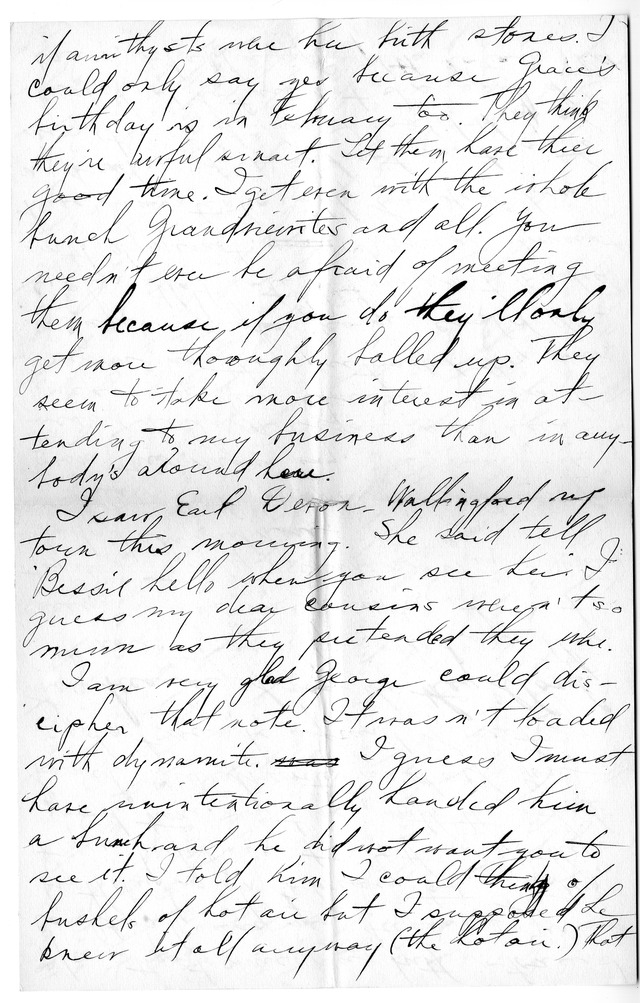 if amithysts were her birth stones. I
could only say yes because Grace's
birthday is in February too. They think
they're awful smart. Let them have their
good time. I get even with the whole
bunch Grandviewites and all. You
needn't ever be afraid of meeting
them because, if you do they'll only
get more thoroughly balled up. They
seem to take more interest in at-
tending to my business than in any-
body's around here.
I saw Earl Wallingford up
town this morning. She said tell
Bessie hello when you see her. I
guess my dear cousins weren't so
mum as they pretended they were.
I am very glad George could dis-
cipher that note. It wasn't loaded
with dynamite. was I guess I must
have unintentionally handed him
a bunch and he did not want you to
see it. I told him I could think of
bushels of hot air but I supposed he
knew it all anyway (the hot air.) That